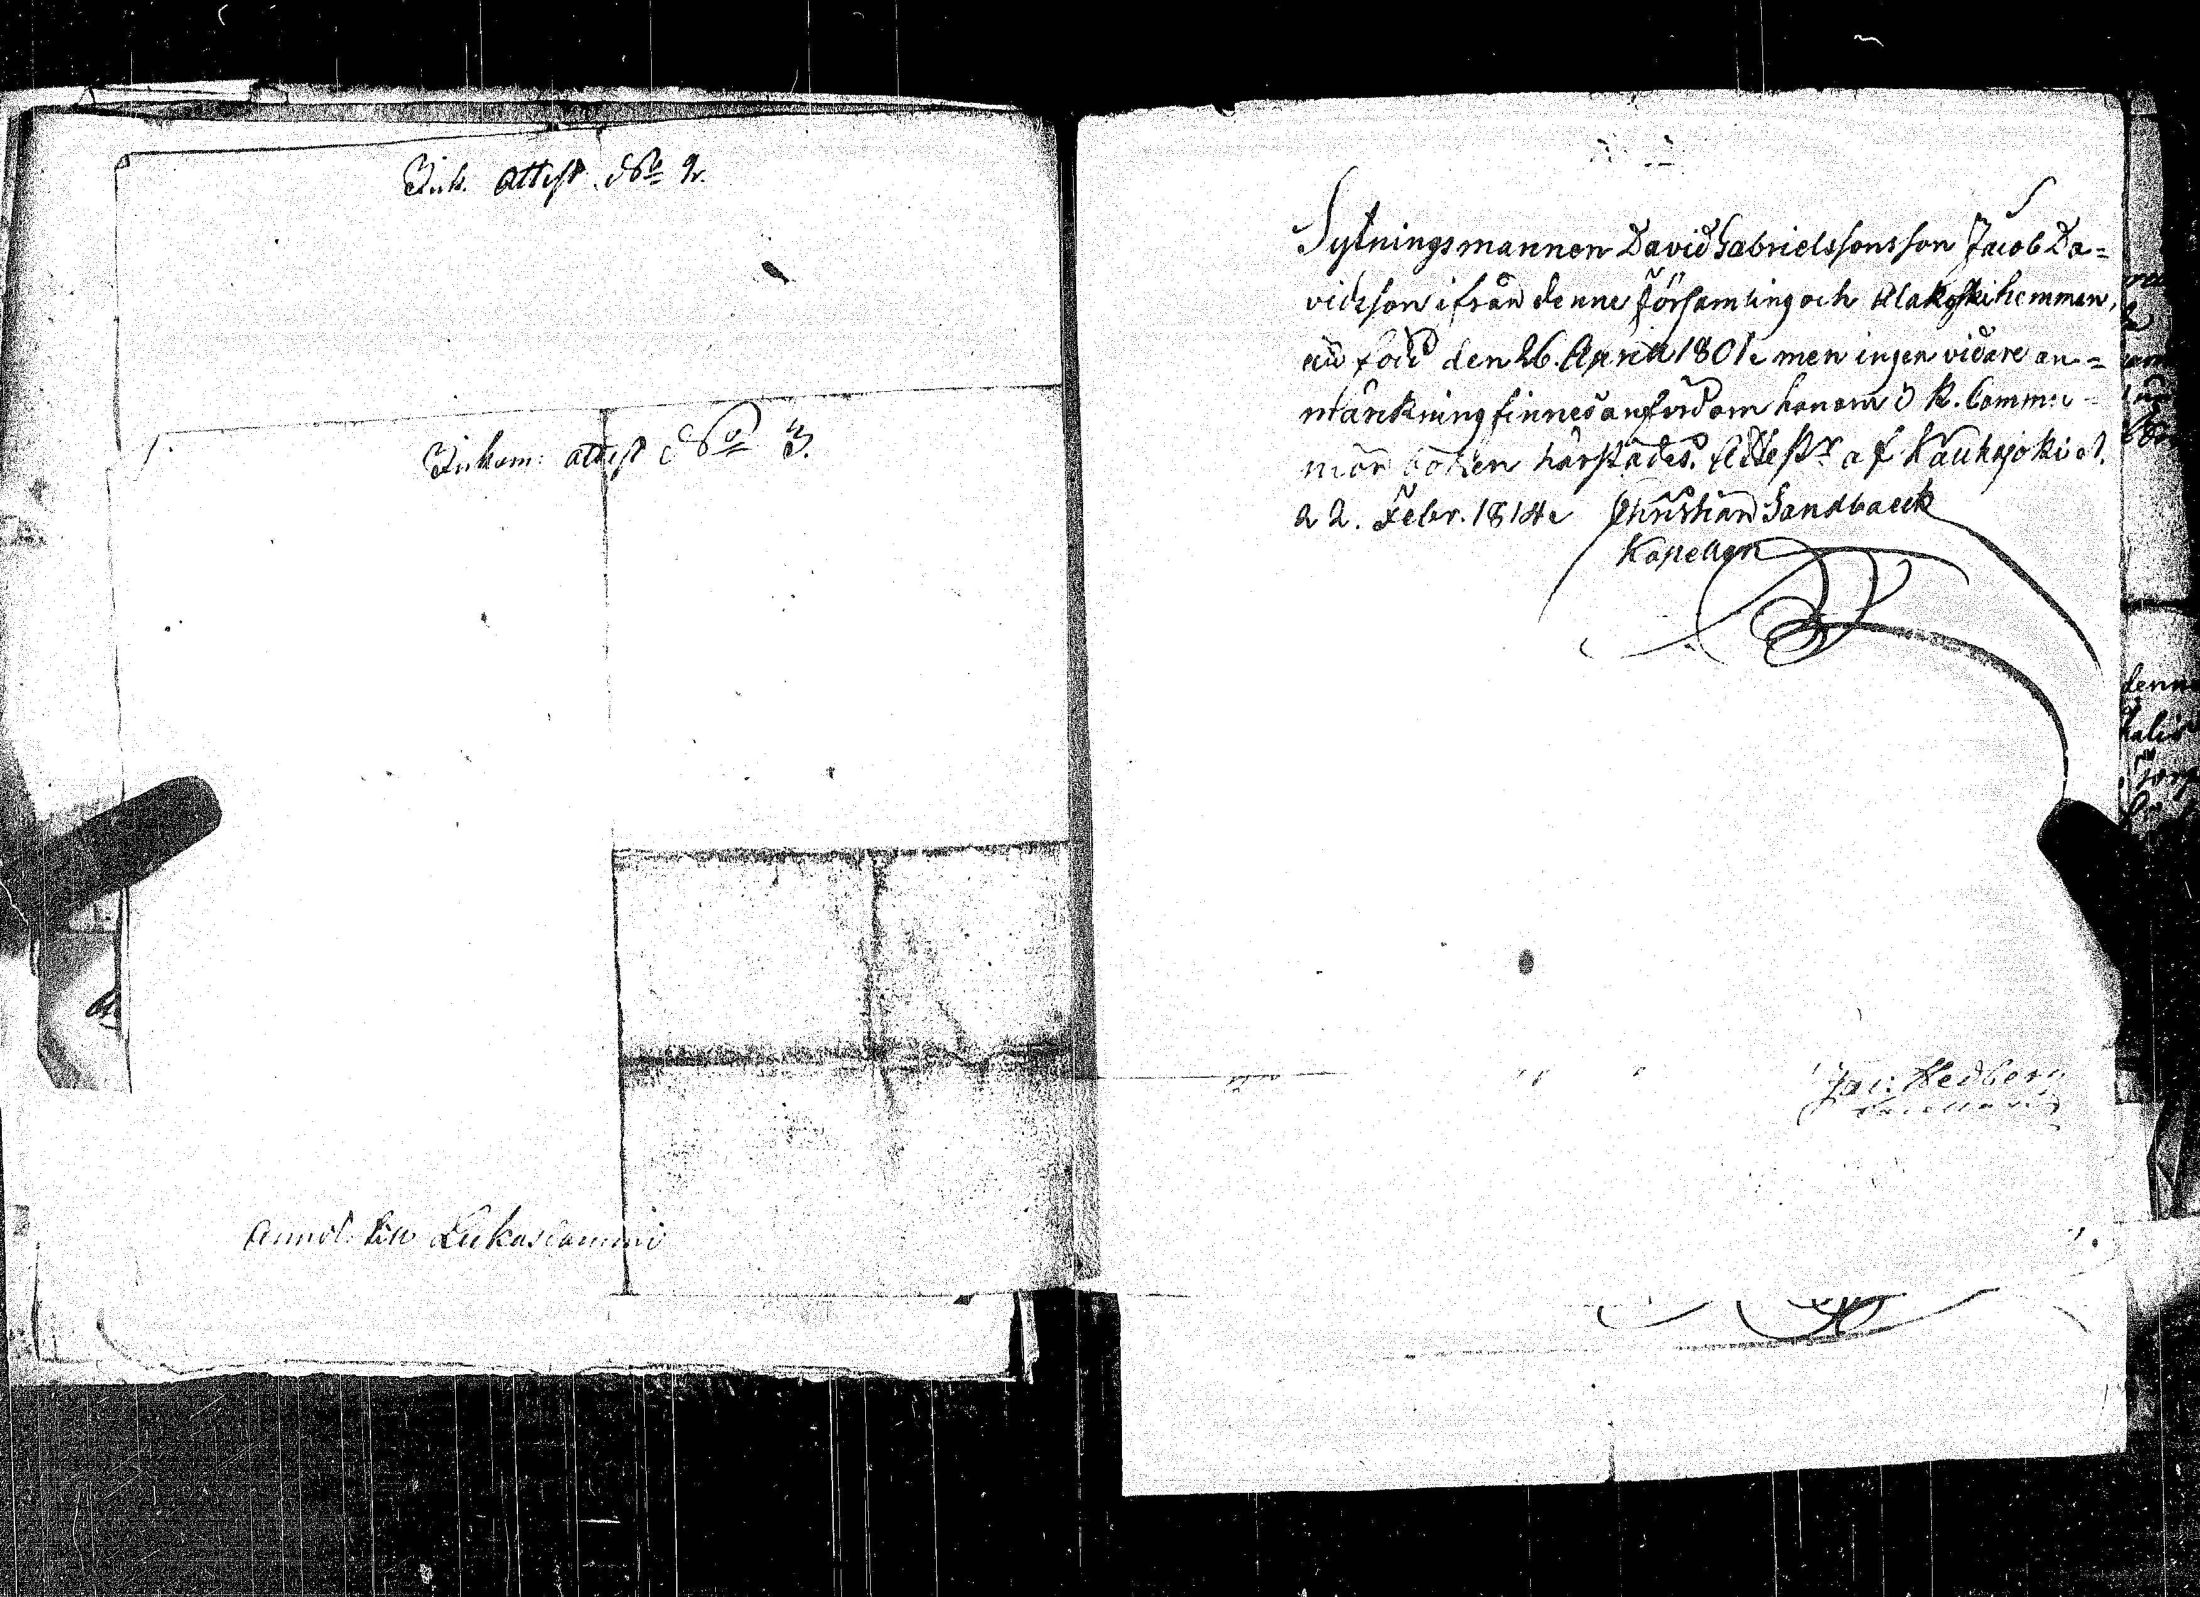 Ink. attest No 2.
Inkom: attest No 3.
Annot. till Lukaslammi
Sytningsmannen David Gabrielssons son Jacob Da=
vidsson ifrån denne församling och Alakoski hemman,
är född den 26. April 1801. men ingen vidare an=
märckning finnes anförd om honom i K. Commu=
nion boken härstädes. Attestr af Kauhajoki d.
22. Febr. 1814. Christian Sandbaeck
Kapellan
Jac: Hedberg